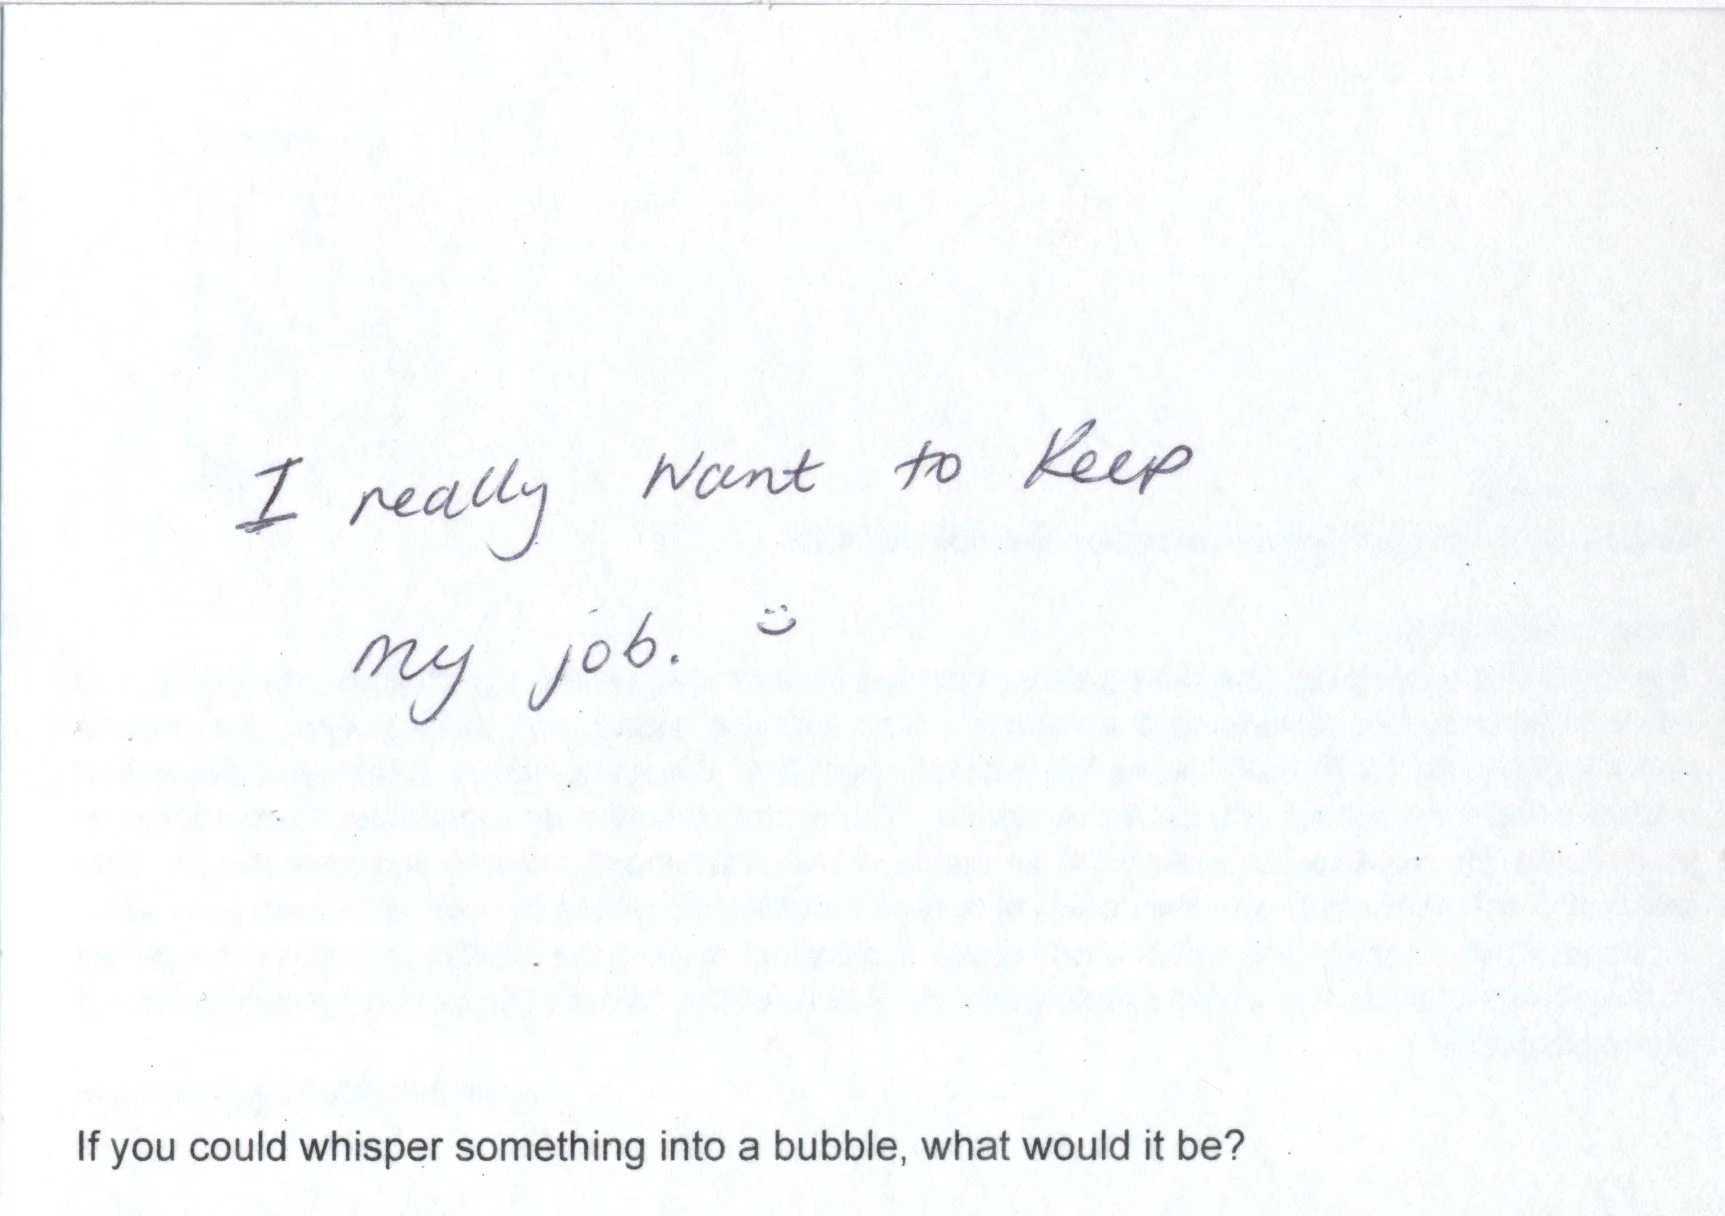 I really want to keep
my job. :)
If you could whisper something into a bubble, what would it be?